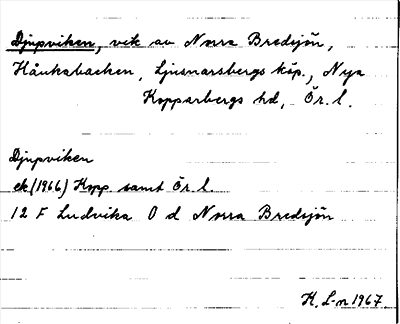 Djupviken, vik av Norra Bredsjön,
Håukabacken, Ljusnarsbergs köp., Nya
Kopparbergs hd, Ör. l.
Djupviken
ek (1966) Kopp. samt Ör. l.
12 F Ludvika O d Norra Bredsjön
H. L-n 1967